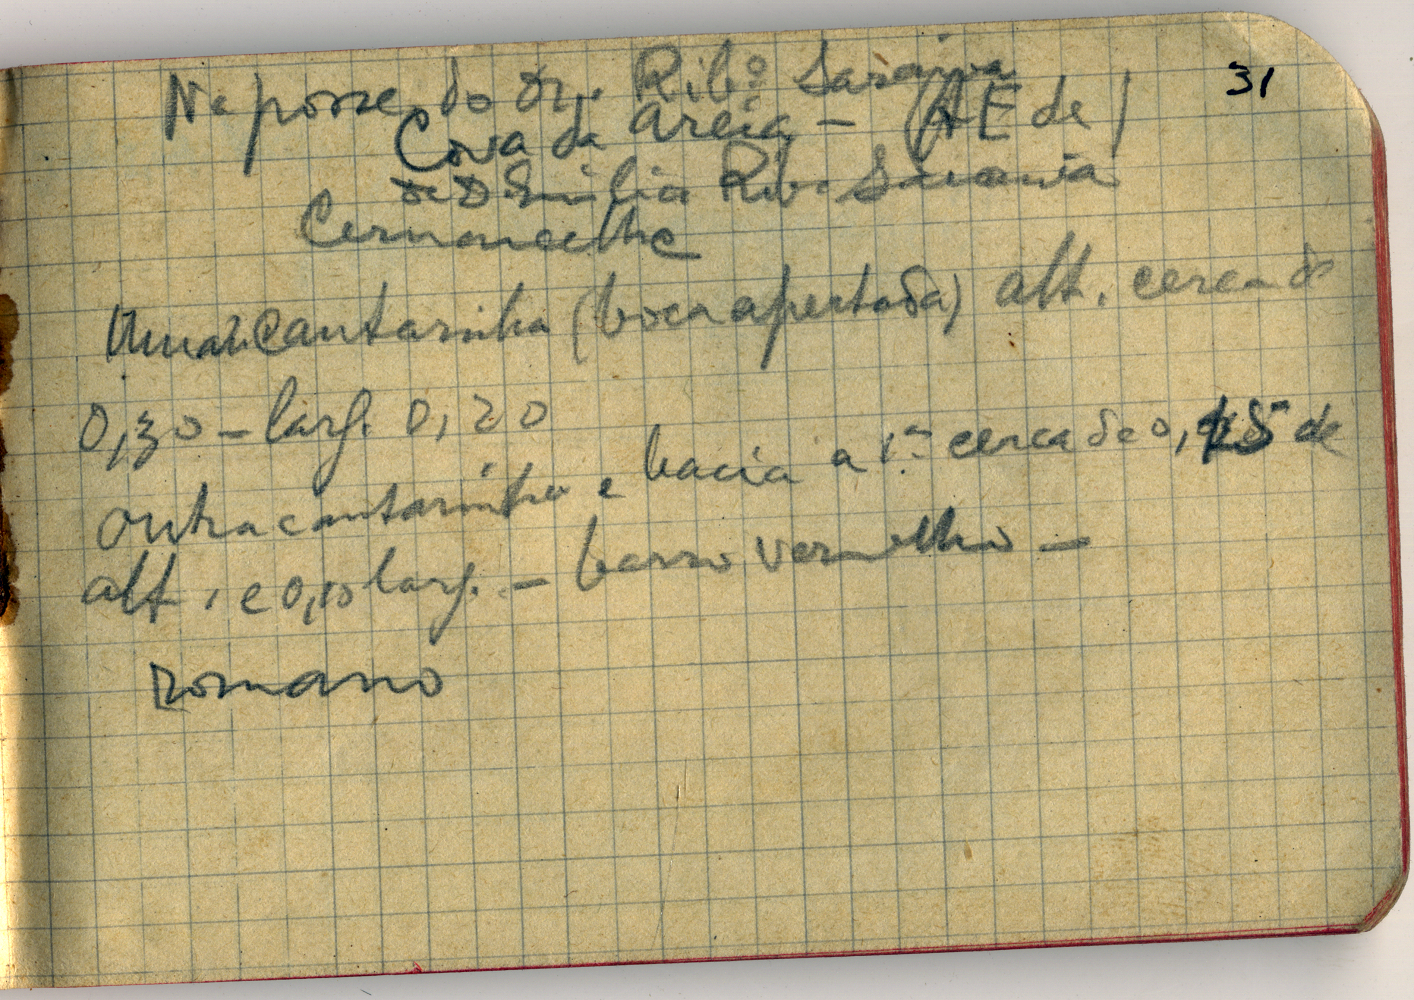 31
Na posse do Dr. Ribº Saraiva
Cova da Areia - (A E de )
de D Emilia Rib. Saraiva
Cernancelhe
Uma cantarinha (boca apertada) alt. cerca de
0,30 - larg. 0,20
Outra cantarinha e bacia a 1.ª cerca de 0,15 de
alt. e 0,10 larg. - barro vermelho -
romano